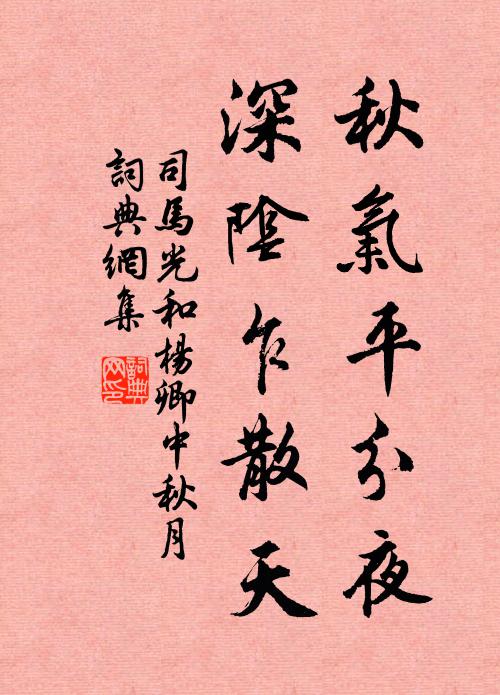 秋氣平分夜
深陰乍散天
司馬光和楊卿中秋月
詞典網集
詞典网印